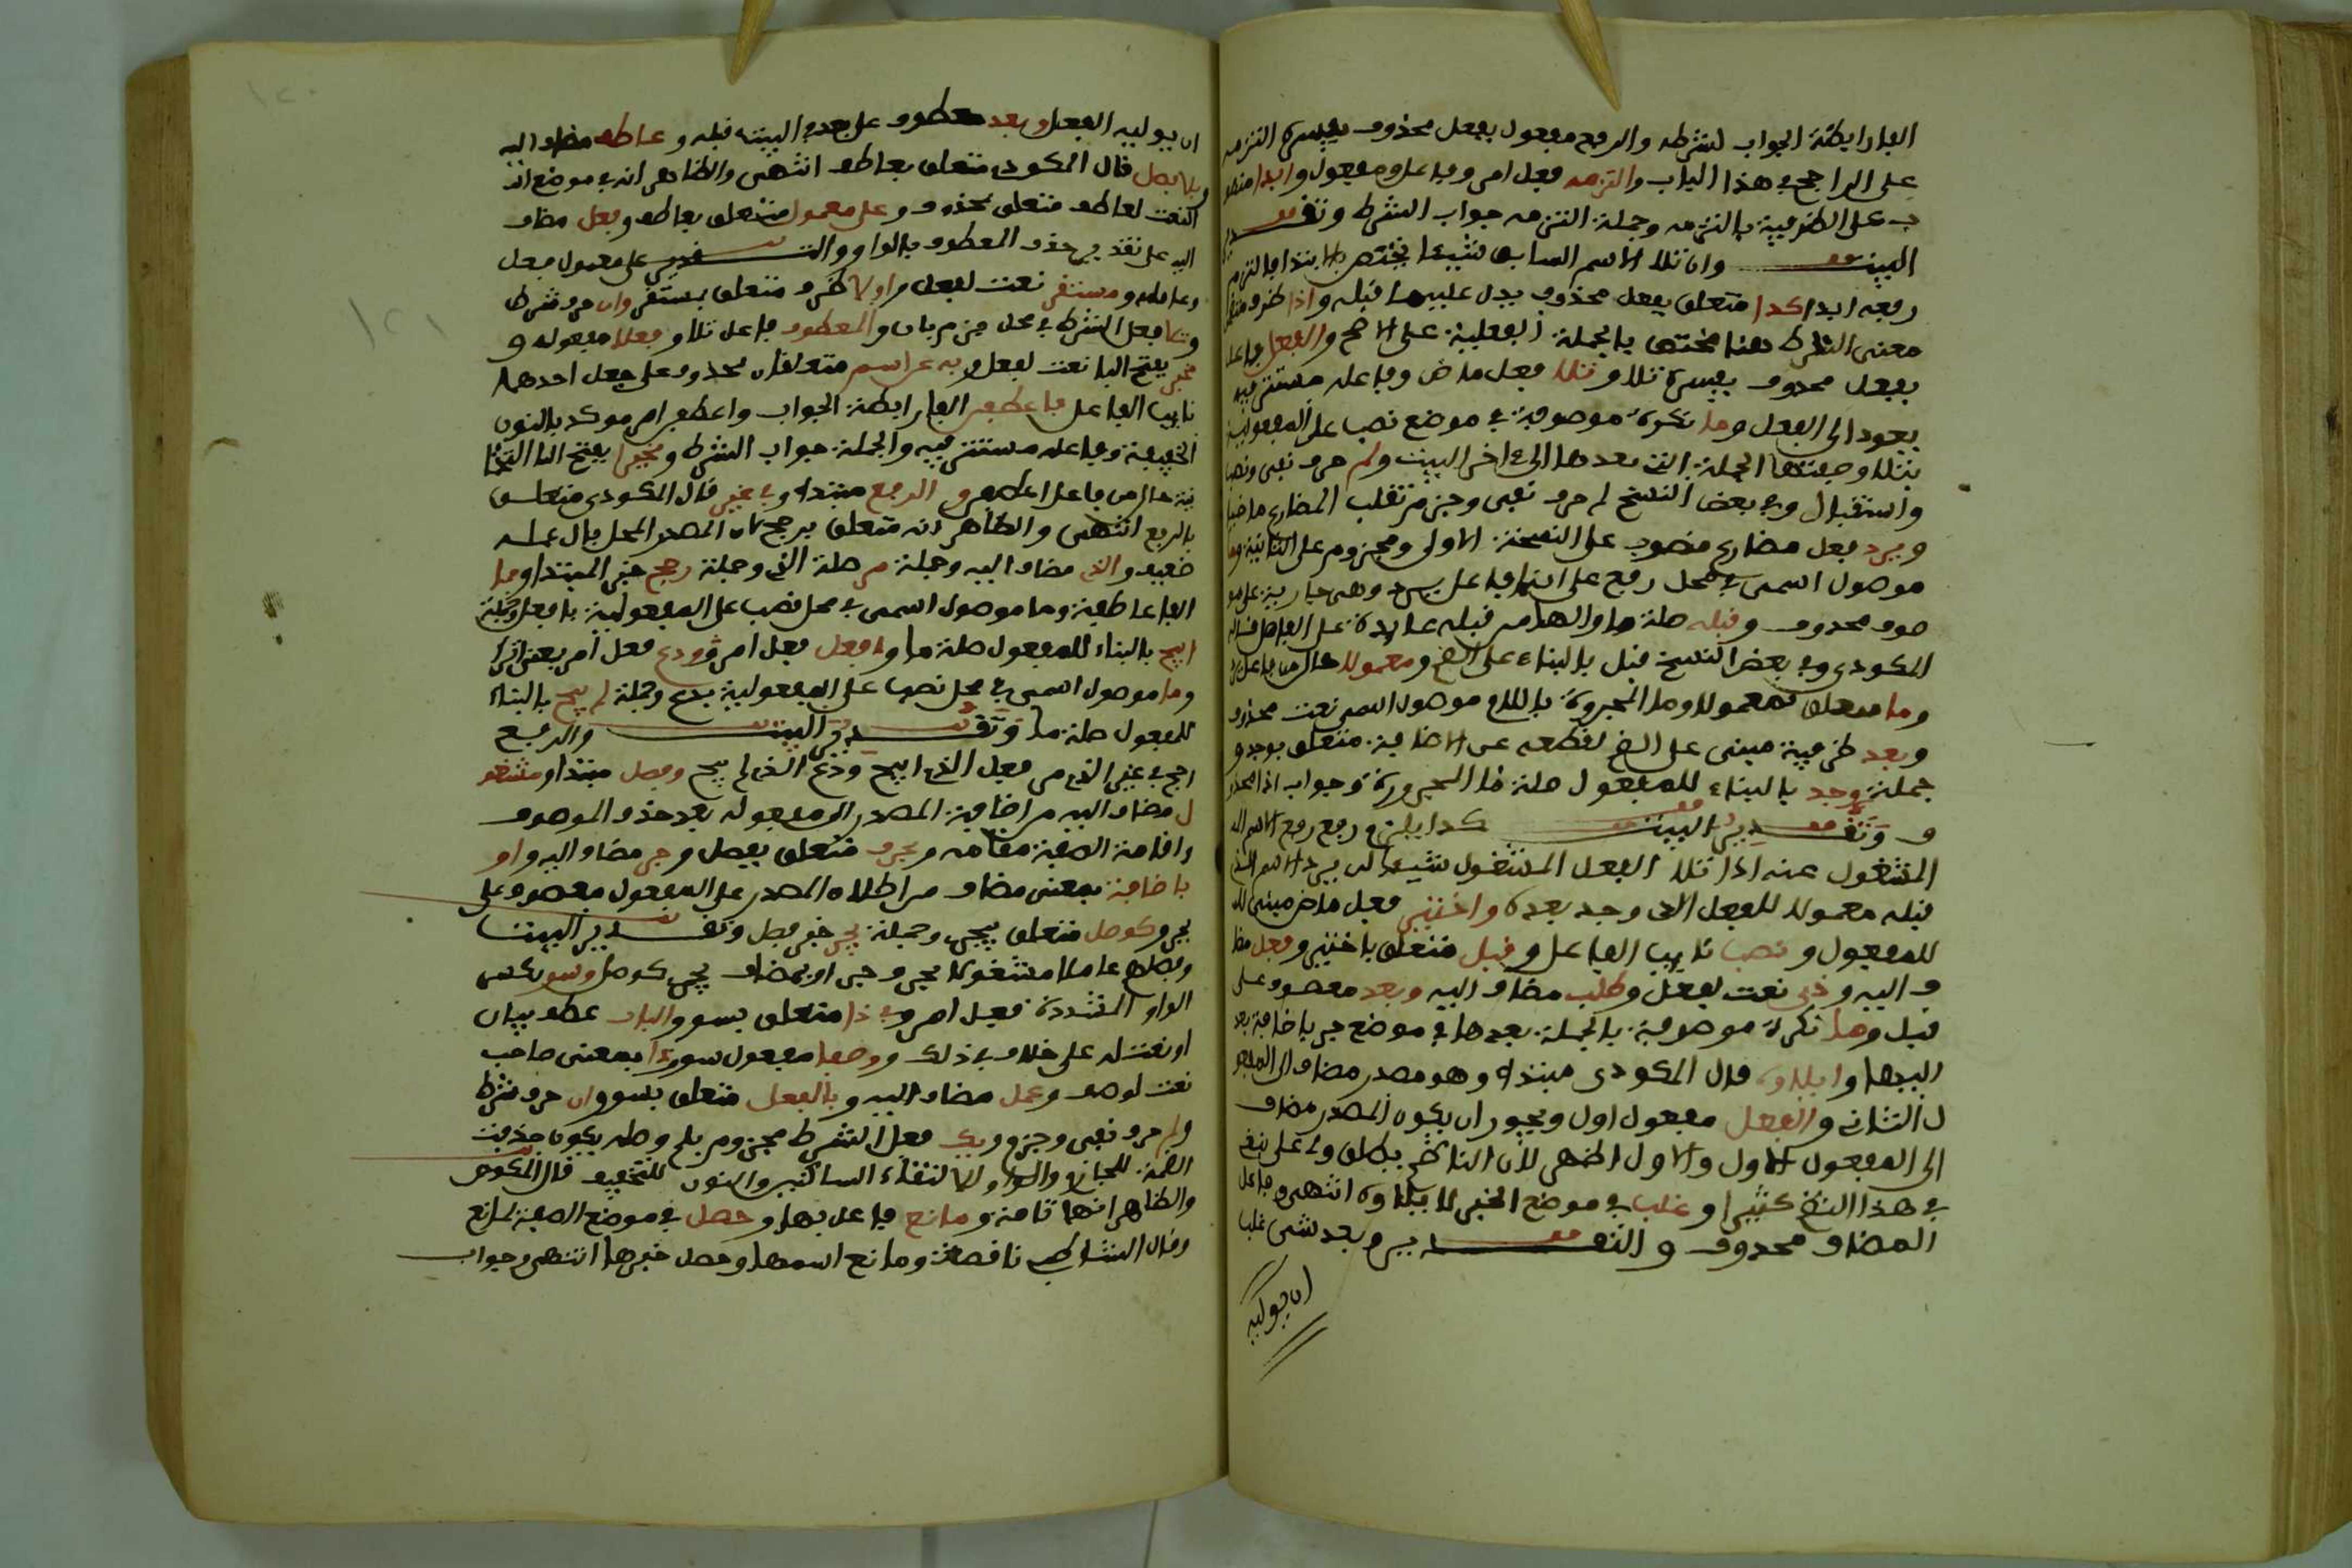 الفا رابطة الجواب لشرطه والرفع مفعول بفعل محذوف يفسره التزمه
على الراجح في هذا الباب والتزمه فعل امر وفاعل ومفعول وابدا منصو
ب على الظرفية بالتزمه وجملة التزمه جواب الشرط وتقدير
البيت وان تلا الاسم السابق شيئا يختص بالابتدا فالتزم
رفعه ابدا كذا متعلق بفعل محذوف يدل عليه ما قبله واذا ظرف مضمن
معنى الشرط هنا مختص بالجملة الفعلية على الاصح والفعل فاعل
بفعل محذوف يفسره تلا وتلا فعل ماض وفاعله مستتر فيه
يعود الى الفعل وما نكرة موصوفة في موضع نصب على المفعولية
بتلا وصفتها الجملة التي بعدها الى اخر البيت ولم حرف نفي ونصب
واستقبال وفي بعض النسخ لم حرف نفي وجزم تقلب المضارع ماضيا
ويرد فعل مضارع منصوب على النسخة الاولى ومجزوم على الثانية وما
موصول اسمي في محل رفع على انها فاعل يرد وهي جارية على مو
صوف محذوف وقبله صلة ما والها من قبله عايدة على الفاصل قاله
المكودي وفي بعض النسخ قبل بالبناء على الضم ومعمولا حال من فاعل يرد
وما متعلق بمعمولا وما المجرورة باللام موصول اسمي نعت محذوف
وبعد ظرفية مبني على الضم لقطعه عن الاضافة متعلق بوجد و
جملة وجد بالبناء للمفعول صلة ما المجرورة وجواب اذا محذو
ف وتقدير البيت كذا يلزم رفع رفع الاسم ال
المشغول عنه اذا تلا الفعل المشغول شيئا لن يرد الاسم الذي
قبله معمولا للفعل الذي وجد بعده واختير فعل ماض مبني لل
للمفعول ونصب نايب الفاعل وقبل متعلق باختير وفعل مضا
ف اليه وذي نعت لفعل وطلب مضاف اليه وبعد معطوف على
قبل وما نكرة موصوفة بالجملة بعدها في موضع جر باضافة بعد
اليها وايلاؤه قال المكودي مبتدا وهو مصدر مضاف الى المفعو
ل الثاني والفعل مفعول اول ويجوز ان يكون المصدر مضاف
الى المفعول الاول والاول اظهر لان الناظم يطلق
في هذا النظم كثيرا وغلب في موضع الخبر لايلاؤه انتهى وفاعل
المضاف محذوف والتقدير وبعد شي غلب
ان يوليه
ان يوليه الفعل وبعد معطوف على بعد في البيت قبله وعاطف مضاف اليه
وبلا فصل قال المكودي متعلق بعاطف انتهى والظاهر انه في موضع
النعت لعاطف متعلق بمحذوف وعلى معمول متعلق بعاطف وفعل مضاف
اليه على تقدير حذف المعطوف بالواو والتقدير على معمول فعل
وعامله ومستقر نعت لفعل واولا ظرف متعلق بمستقر وان حرف شرط
وتلا فعل الشرط في محل جزم بان والمعطوف فاعل تلا وفعلا مفعوله و
مخبر بفتح البا نعت لفعل وبه عن اسم متعلقان بمحذوف على جعل احدهما
نايب الفاعل فاعطفن الفا رابطة الجواب واعطف امر موكد بالنون
الخفيفة وفاعله مستتر فيه والجملة جواب الشرط ومخيرا بفتح اليا التحتا
نية حال من فاعل اعطفن والرفع مبتدا وفي غير قال المكودي متعلق
بالرفع انتهى والظاهر انه متعلق برجح لان المصدر المحلى بال عمله
ضعيف والذي مضاف اليه وجملة مر صلة الذي وجملة رجح خبر المبتدا وما
الفا عاطفة وما موصول اسمي في محل نصب على المفعولية بافعل وجملة
ابيح بالبناء للمفعول صلة ما وافعل فعل امر ودع فعل امر بمعنى اترك
وما موصول اسمي في محل نصب على المفعولية بدع وجملة لم يبح بالبناء
للمفعول صلة ما وتقدير البيت والرفع
رجح في غير الذي مر فعل الذي ابيح ودع الذي لم يبح وفصل مبتدا ومشغو
ل مضاف اليه من اضافة المصدر الى مفعوله بعد حذف الموصوف
واقامة الصفة مقامه وبحرف متعلق بفصل وجر مضاف اليه واو
باضافة بمعنى مضاف من اطلاق المصدر على المفعول معطوف على
بحرف وكوصل متعلق بيجري وجملة يجري خبر فصل وتقدير البيت
وفصل عاملا مشغولا بحرف جر او بمضاف يجري كوصل وسو بكسر
الواو المشددة فعل امر وفي ذا متعلق بسو والباب عطف بيان
او نعت له على خلاف في ذلك ووصفا مفعول سو وذا بمعنى صاحب
نعت لوصف وعمل مضاف اليه وبالفعل متعلق بسو وان حرف شرط
ولم حرف نفي وجزم ويك فعل الشرط مجزوم بلم وصله يكون حذفت
الضمة للجازم والواو لالتقاء الساكنين والنون للتخفيف قال المكودي
والظاهر انها تامة ومانع فاعل بها وحصل في موضع الصفة لمانع
وقال الشاطبي ناقصة ومانع اسمها وحصل خبرها انتهى وجواب